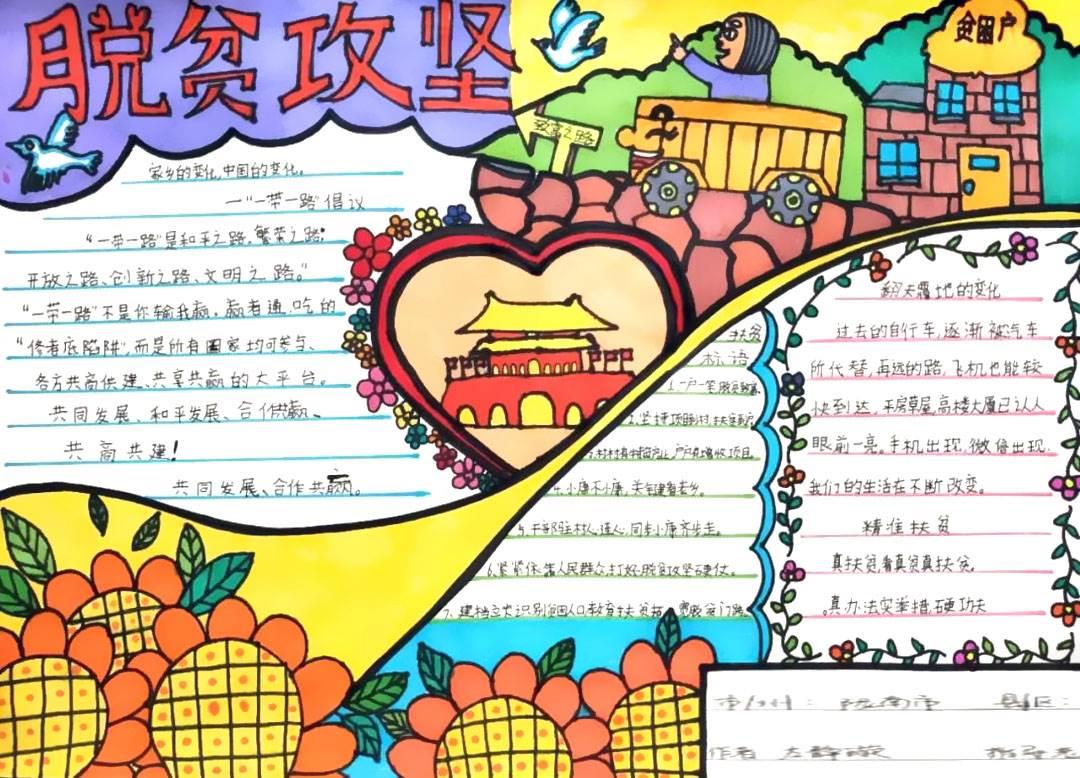 脱贫攻坚
贫困户
致富之路
家乡的变化,中国的变化。
一"一带一路"倡议
"一带一路"是和平之路,繁荣之路,
开放之路、创新之路、文明之路。"
"一带一路"不是你输我赢,赢者通吃的
"修者底陷阱",而是所有国家均可参与、
各方共商共建、共享共赢的大平台。
共同发展、和平发展、合作共赢、
共商共建!
共同发展、合作共赢。
扶贫
标语
4、小康不小康,关键看老乡。
5、干部驻村入连心,同步小康齐步走。
6、紧紧依靠人民群众,打好脱贫攻坚硬仗。
7、建档立卡识别贫困人口,教育扶贫
翻天覆地的变化
过去的自行车,逐渐被汽车
所代替,再远的路,飞机也能较
快到达,平房草屋,高楼大厦已让人
眼前一亮。手机出现,微信出现,
我们的生活在不断改变。
精准扶贫
真扶贫,看真贫真扶贫,
真办法实举措,硬功夫
市/州: 陇南市 县区:
作者